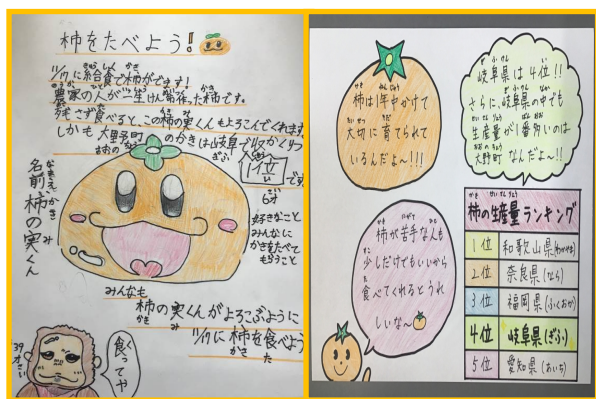 柿をたべよう!
11/17に給食で柿がでます!
農家の人が一生けん命作った柿です。
残さず食べると、この柿の実くんもよろこんでくれます。
しかも大野町のかきは岐阜で収かくりつ
1位です
6才
名前、柿の実くん
好きなこと
みんなに
かきをたべて
もらうこと
みんなも
柿の実くんがよろこぶように
11/17に柿を食べよう
39才
食ってや
柿は1年中かけて
大切に育てられて
いるんだよ〜!!!
岐阜県は4位!!
さらに、岐阜県の中でも
生産量が1番多いのは
大野町なんだよ〜!!
柿が苦手な人も
少しだけでもいいから
食べてくれるとうれ
しいな〜
柿の生産量ランキング
1位 和歌山県(わかやま)
2位 奈良県(なら)
3位 福岡県(ふくおか)
4位 岐阜県(ぎふ)
5位 愛知県(あいち)